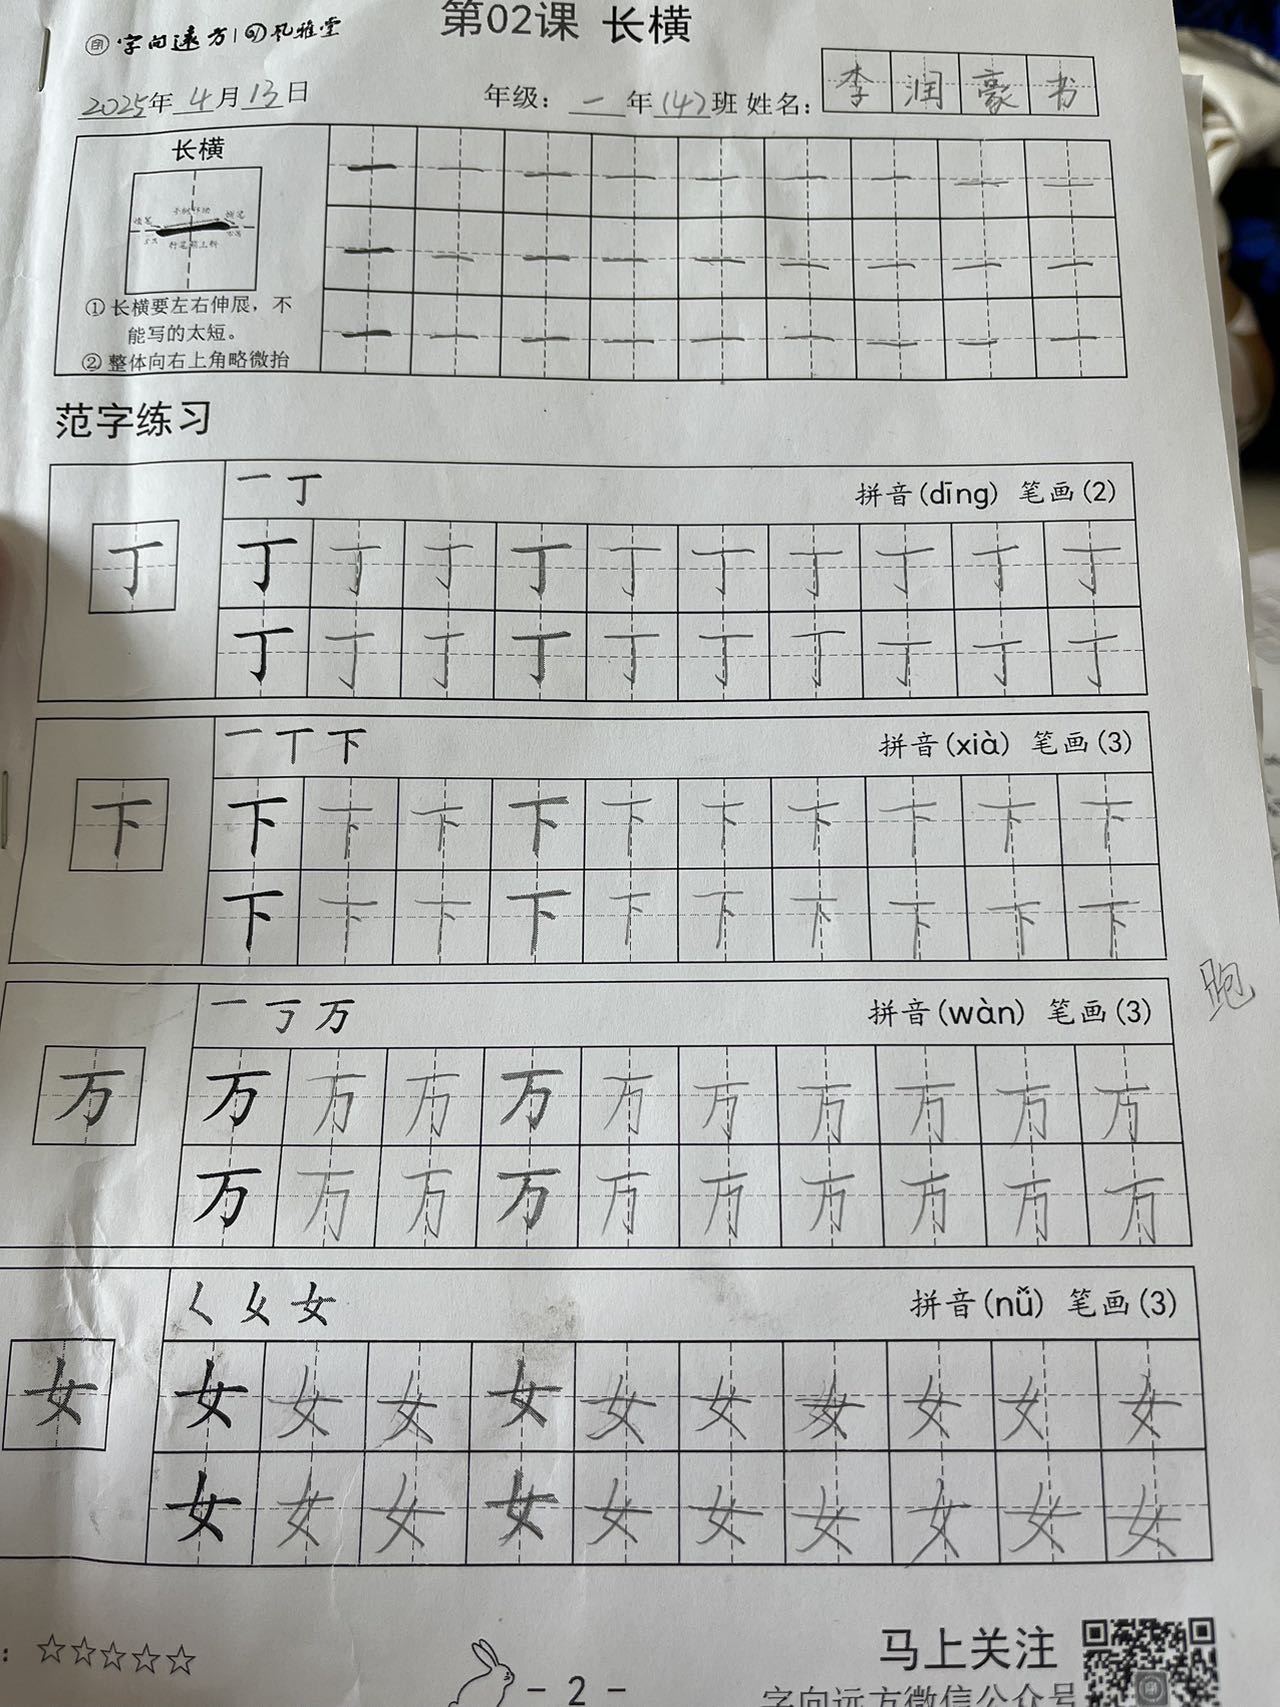 字向远方 | 风雅堂
第02课 长横
2025年 4月13日 年级: 一年(4)班 姓名: 李润豪书
长横
一 一 一 一 一 一 一 一 一
行笔稍上斜
一 一 一 一 一 一 一 一 一
① 长横要左右伸展,不
能写的太短。
② 整体向右上角略微抬
一 一 一 一 一 一 一 一 一
范字练习
一 丁 拼音(dīng) 笔画(2)
丁 丁 丁 丁 丁 丁 丁 丁 丁 丁 丁
丁 丁 丁 丁 丁 丁 丁 丁 丁 丁
一 丅 下 拼音(xià) 笔画(3)
下 下 下 下 下 下 下 下 下 下 下
下 下 下 下 下 下 下 下 下 下
跑
一 丂 万 拼音(wàn) 笔画(3)
万 万 万 万 万 万 万 万 万 万 万
万 万 万 万 万 万 万 万 万 万
く 夊 女 拼音(nǚ) 笔画(3)
女 女 女 女 女 女 女 女 女 女 女
女 女 女 女 女 女 女 女 女 女
: ☆☆☆☆☆
马上关注
- 2 -
字向远方微信公众号